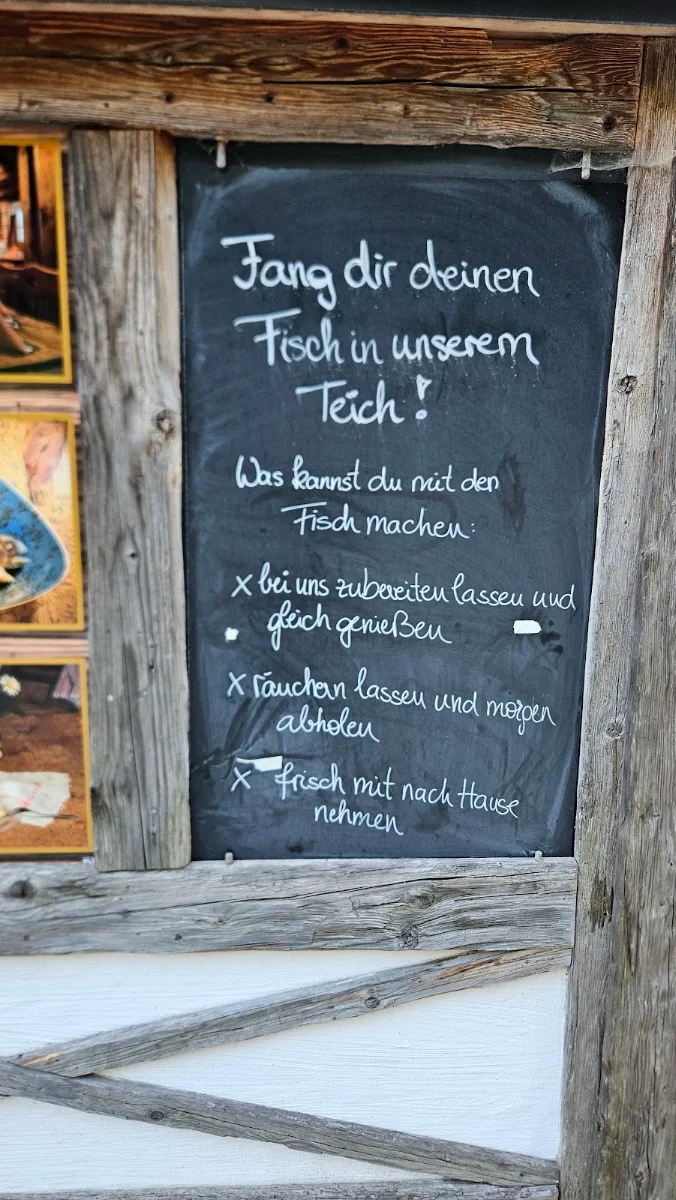 Fang dir deinen
Fisch in unserem
Teich!
Was kannst du mit den
Fisch machen:
x bei uns zubereiten lassen und
gleich genießen
x räuchern lassen und morgen
abholen
x frisch mit nach Hause
nehmen